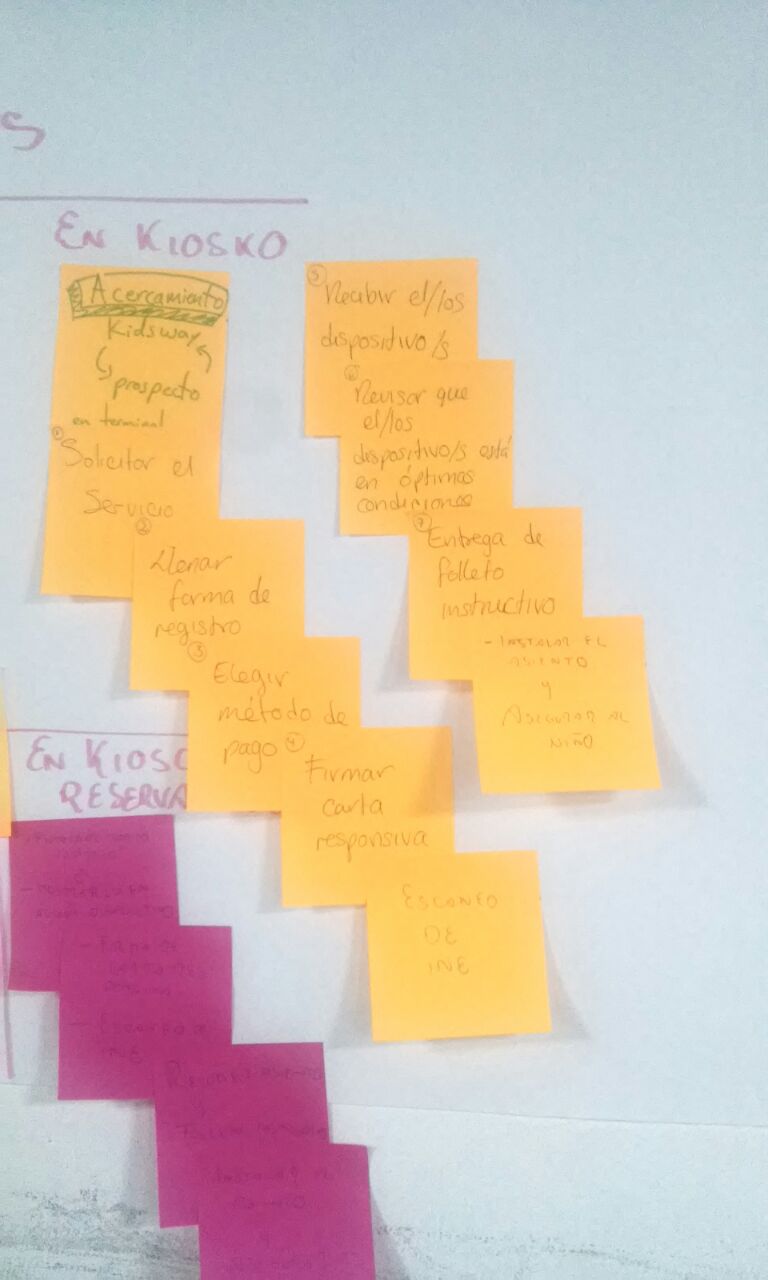 S
EN KIOSKO
Acercamiento
Kidsway
prospecto
en terminal
① Solicitar el
Servicio
②
Llenar
forma de
registro
③
Elegir
método de
pago
④
Firmar
carta
responsiva
ESCANEO
DE
INE
⑤
Recibir el/los
dispositivo/s
⑥
Revisar que
el/los
dispositivo/s está
en óptimas
condiciones
⑦
Entrega de
folleto
instructivo
- INSTALAR EL
ASIENTO
Y
ASEGURAR AL
NIÑO
EN KIOSC
RESERVA
- FIRMA DE
CARTA RES
- ESCANEO DE
INE
Y